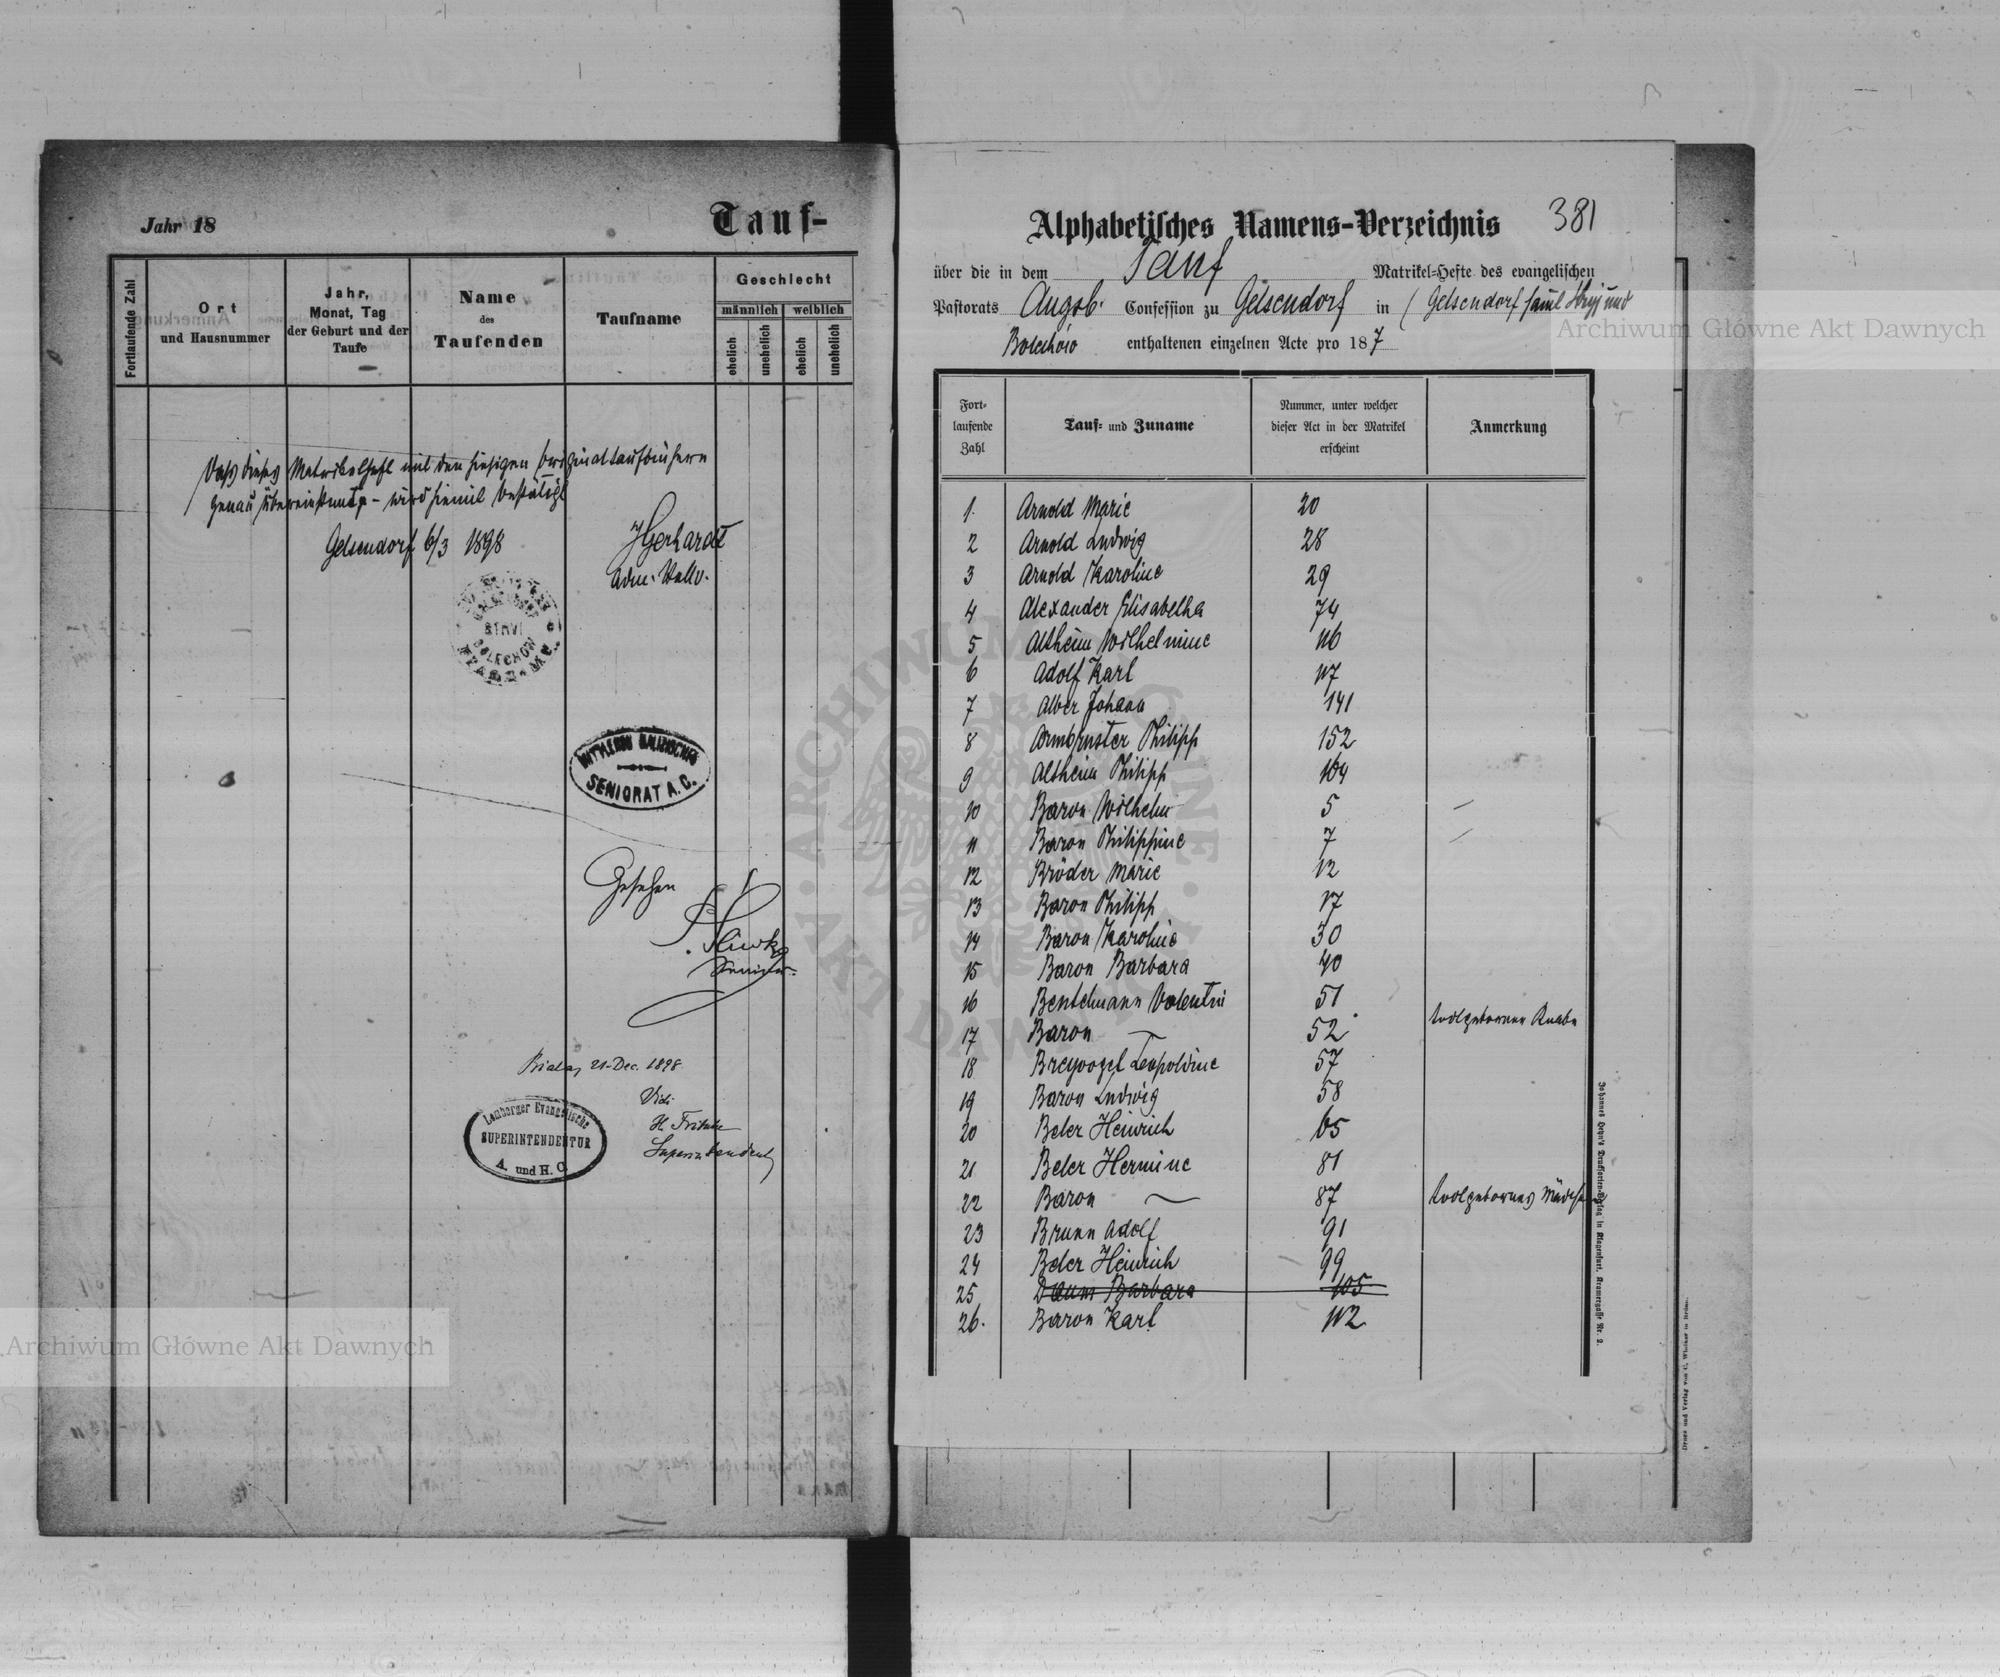 Jahr 18
Tauf-
Fortlaufende Zahl
Ort
und Hausnummer
Jahr,
Monat, Tag
der Geburt und der
Taufe
Name
des
Taufenden
Taufname
Geschlecht
männlich
weiblich
ehelich
unehelich
ehelich
unehelich
Daß dieses Matrikelheft mit den hiesigen Originaltaufbüchern
genau übereinstimmt - wird hiemit bestätigt
Gelsendorf 6/3 1898
JGerhardt
Adm.
STRYI
BOLECHOW
SENIORAT A. C.
Gesehen
Senior.
Biala, 21. Dec. 1898
Vidi
H. Fritsche
Superintendent
Lemberger Evangelische
SUPERINTENDENTUR
A. und H. C.
Alphabetisches Namens-Verzeichnis
381
über die in dem Tauf Matrikel-Hefte des evangelischen
Pastorats Augsb. Confession zu Gelsendorf in (Gelsendorf samt Stryj und
Bolechów enthaltenen einzelnen Acte pro 187
Fort-
laufende
Zahl
Tauf- und Zuname
Nummer, unter welcher
dieser Act in der Matrikel
erscheint
Anmerkung
1. Arnold Marie 20
2 Arnold Ludwig 28
3 Arnold Karoline 29
4 Alexander Elisabetha 74
5 Altheim Wilhelmine 116
6 Adolf Karl 117
7 Alber Johann 141
8 Armbruster Philipp 152
9 Altheim Philipp 164
10 Baron Wilhelm 5
11 Baron Philippine 7
12 Bröder Marie 12
13 Baron Philipp 17
14 Baron Karoline 30
15 Baron Barbara 40
16 Bentelmann Valentin 51
17 Baron — 52 todtgeborener Knabe
18 Breyvogel Leopoldine 57
19 Baron Ludwig 58
20 Beler Heinrich 65
21 Beler Hermine 81
22 Baron — 87 todtgebornes Mädchen
23 Brunn Adolf 91
24 Beler Heinrich 99
25 Daum Barbara 105
26. Baron Karl 112
Johannes Heyn's Drucksorten-Verlag in Klagenfurt, Kramergasse Nr. 2.
Druck und Verlag von
Archiwum Główne Akt Dawnych
Archiwum Główne Akt Dawnych